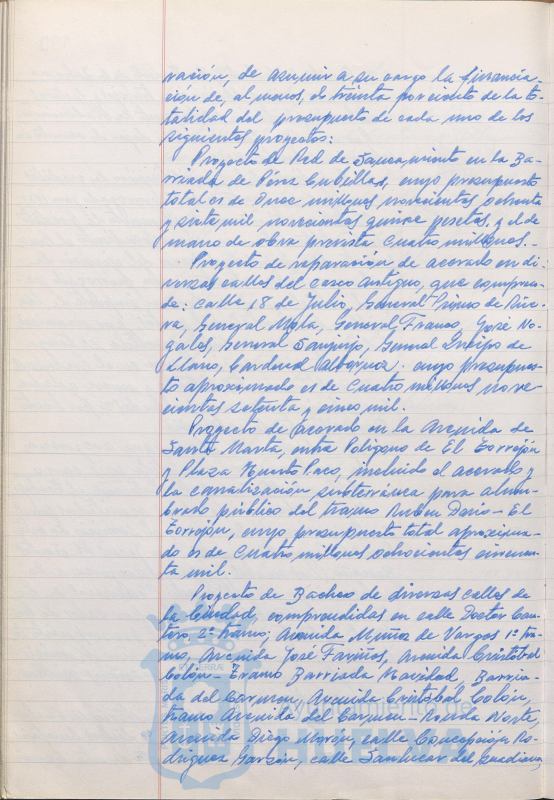 ración, de asumir a su cargo la financia-
ción de, al menos, el treinta por ciento de la to-
talidad del presupuesto de cada uno de los
siguientes proyectos:
Proyecto de Red de Saneamiento en la Ba-
rriada de Pérez Cubillas, cuyo presupuesto
total es de once millones novecientas ochenta
y siete mil novecientas quince pesetas, y el de
mano de obra prevista cuatro millones.-
Proyecto de reparación de acerado en di-
versas calles del casco antiguo, que compren-
de: calle 18 de Julio, General Primo de Rive-
ra, General Mola, General Franco, José No-
gales, General Sanjurjo, General Queipo de
Llano, Cardenal Albornoz. cuyo presupues-
to aproximado es de cuatro millones nove
cientas setenta y cinco mil.
Proyecto de acerado en la Avenida de
Santa Marta, entre Polígono de El Torrejón
y Plaza Huerto Paco, incluido el acerado y
la canalización subterránea para alum-
brado público del tramo Ruben Dario - El
Torrejón, cuyo presupuesto total aproxima-
do es de cuatro millones ochocientas cincuen-
ta mil.
Proyecto de Bacheo de diversas calles de
la Ciudad, comprendidas en calle Doctor Can-
tero 2º tramo; Avenida Muñoz de Vargas 1º tra-
mo, Avenida José Fariñas, Avenida Cristóbal
Colón - Tramo Barriada Navidad, Barria-
da del Carmen, Avenida Cristóbal Colón,
tramo Avenida del Carmen - Ronda Norte,
Avenida Diego Morón, calle Concepción Ro-
dríguez Garzón, calle Sanlucar del Guadiana,
Ayuntamiento de
HUELVA